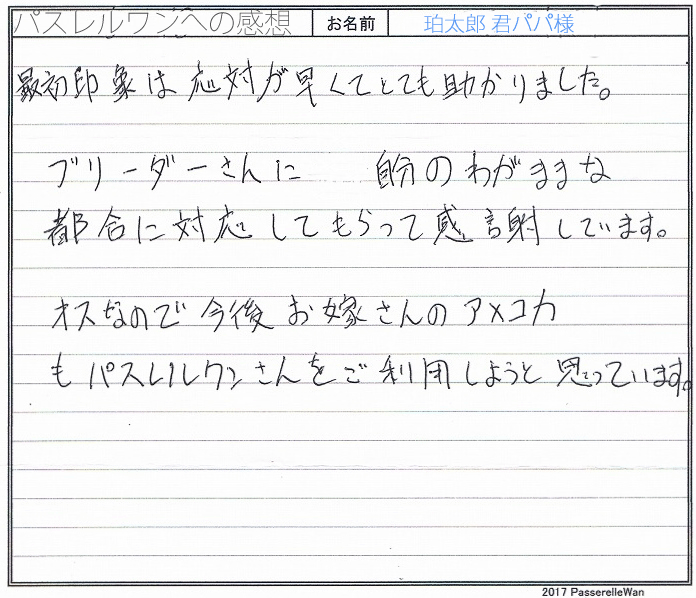 パスレルワンへの感想 お名前 珀太郎 君パパ様
最初印象は応対が早くてとても助かりました。
ブリーダーさんに 自分のわがままな
都合に対応してもらって感謝しています。
オスなので今後お嫁さんのアメコカ
もパスレルワンさんをご利用しようと思っています。
2017 PasserelleWan